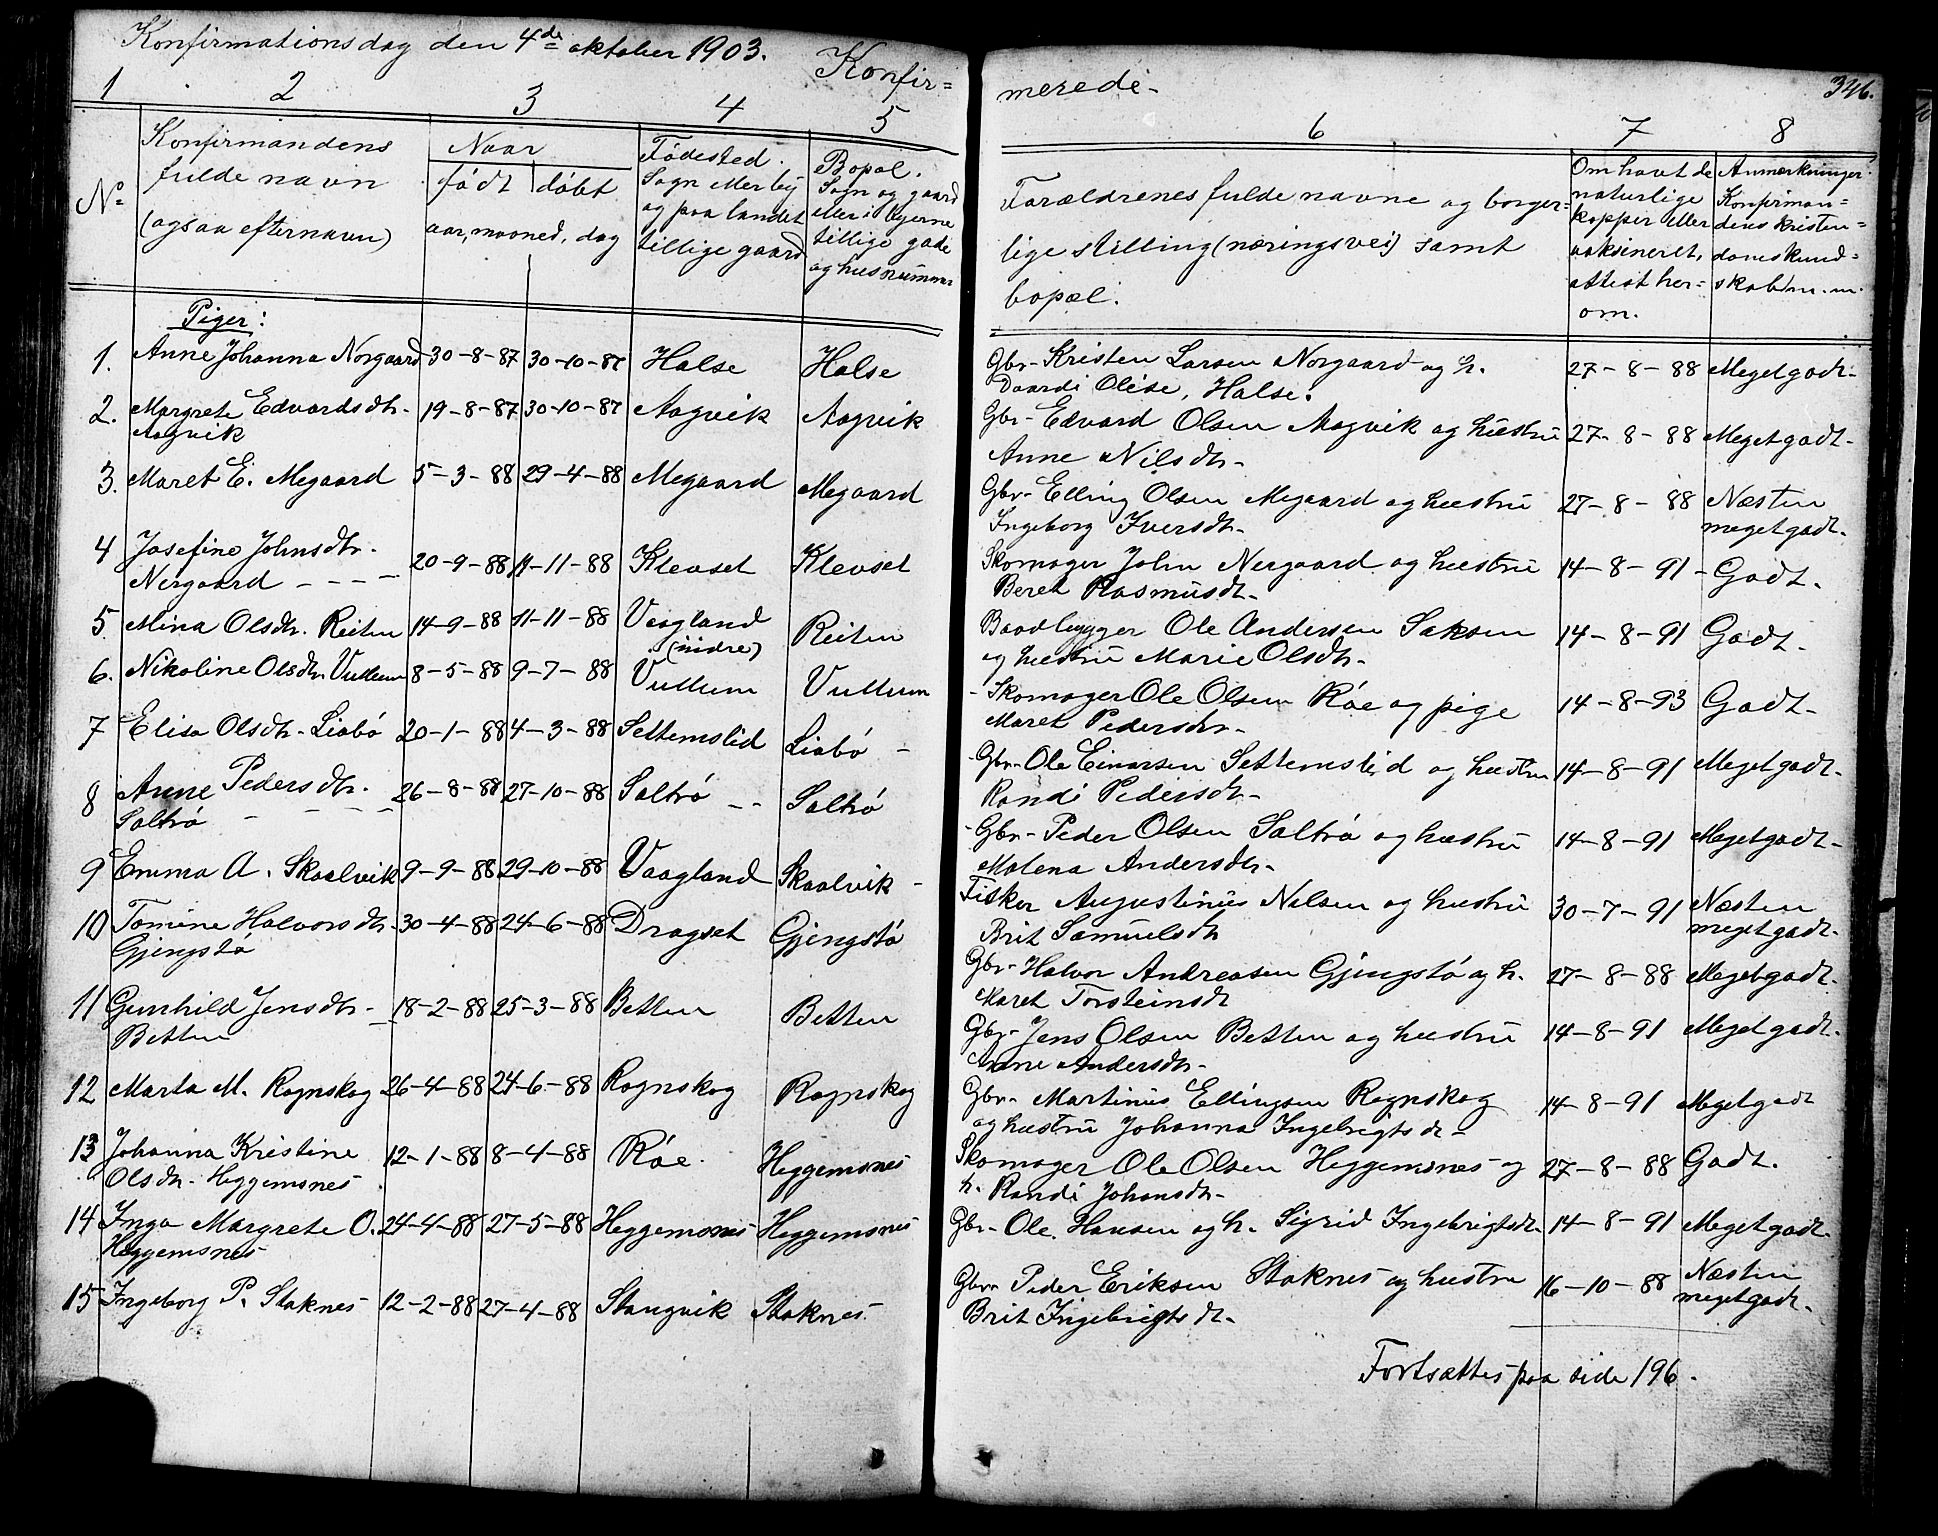 Konfirmationsdag den 4de oktober 1903. Konfir=
1 2 3 4 5
No
Konfirmandens
fulde navn
(ogsaa efternavn)
Naar
født døbt
aar, maaned, dag
Fødested.
Sogn eller by
og paa landet
tillige gaard
Bopæl.
Sogn og gaard
eller i byerne
tillige gade
og husnummer
Piger:
1. Anne Johanna Norgaard 30-8-87 30-10-87 Halse Halse
2. Margrete Edvardsdtr. 19-8-87 30-10-87 Aagvik Aagvik
Aagvik
3. Maret E. Megaard 5-3-88 29-4-88 Megaard Megaard
4 Josefine Johnsdtr. 20-9-88 11-11-88 Klevset Klevset
Nergaard
5 Mina Olsdtr. Reiten 14-9-88 11-11-88 Vaagland Reiten
(indre)
6. Nikoline Olsdtr. Vullum 8-5-88 9-7-88 Vullum Vullum
7 Elisa Olsdtr. Liabø 20-1-88 4-3-88 Settemslid Liabø
8 Anne Pedersdtr. 26-8-88 27-10-88 Saltrø Saltrø
Saltrø
9 Emma A. Skaalvik 9-9-88 29-10-88 Vaagland Skaalvik
10 Tomine Halvorsdtr. 30-4-88 24-6-88 Dragset Gjengstø
Gjengstø
11 Gunhild Jensdtr. 18-2-88 25-3-88 Betten Betten
Betten
12 Marta M. Rognskog 26-4-88 24-6-88 Rognskog Rognskog
13 Johanna Kristine 12-1-88 8-4-88 Røe. Heggemsnes
Olsdtr. Heggemsnes
14 Inga Margrete O. 24-4-88 27-5-88 Heggemsnes Heggemsnes
Heggemsnes
15 Ingeborg P. Stoknes 12-2-88 27-4-88 Stangvik Stoknes
merede.
346.
6 7 8
Forældrenes fulde navne og borger=
lige stilling (næringsvei) samt
bopæl.
Om havt de
naturlige
kopper eller
vaksineret,
attest her=
om.
Anmerkninger
Konfirman=
dens kristen=
domskund=
skab m.m.
Gbr. Kristen Larsen Norgaard og h. 27-8-88 Meget godt.
Daardi Olése, Halse.
Gbr. Edvard Olsen Aagvik og hustru 27-8-88 Meget godt.
Anne Nilsdtr.
Gbr. Elling Olsen Megaard og hustru 27-8-88 Næsten
Ingeborg Iversdtr. meget godt.
Skomager John Nergaard og hustru 14-8-91 Godt.
Beret Rasmusdtr.
Baadbygger Ole Andersen Saksen 14-8-91 Godt.
og hustru Marie Olsdtr.
Skomager Ole Olsen Røe og pige 14-8-93 Godt.
Maret Pedersdtr.
Gbr. Ole Einarsen Settemslid og hustru 14-8-91 Meget godt.
Randi Pedersdtr.
Gbr. Peder Olsen Saltrø og hustru 14-8-91 Meget godt.
Malena Andersdtr.
Fisker Augustinus Nilsen og hustru 30-7-91 Næsten
Brit Samuelsdtr meget godt.
Gbr. Halvor Andreasen Gjengstø og h. 27-8-88 Meget godt.
Maret Torsteinsdt
Gbr. Jens Olsen Betten og hustru 14-8-91 Meget godt.
Anne Andersdtr.
Gbr. Martinus Ellingsen Rognskog 14-8-91 Meget godt
og hustru Johanna Ingebrigtsdt.
Skomager Ole Olsen Heggemsnes og 27-8-88 Godt.
h. Randi Johansdtr.
Gbr. Ole Hansen og h. Sigrid Ingebrigtsdt. 14-8-91 Meget godt.
Gbr. Peder Eriksen Stoknes og hustru 16-10-88 Næsten
Brit Ingebrigtsdt. meget godt.
Fortsættes paa side 196.